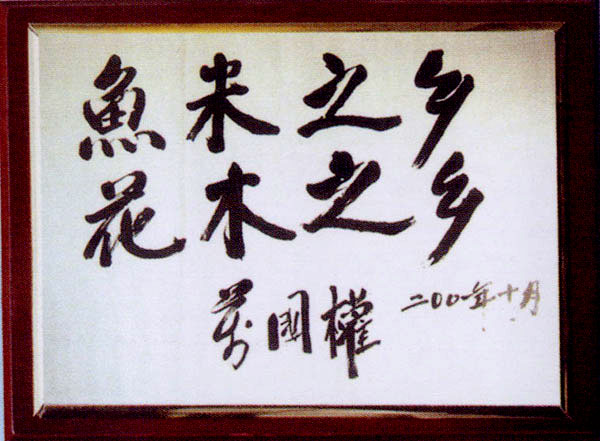 魚米之乡
花木之乡
萬国權 二00一年十月